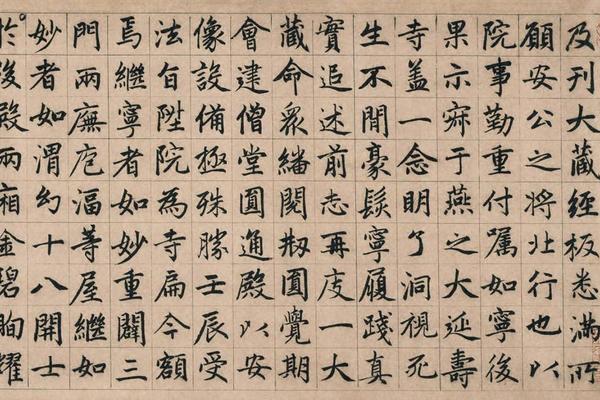 及刊大藏經板悉滿所
願安公之將北行也以
院事勤重付嘱如寧後
果示寂于燕之大延壽
寺盖一念明了洞視死
生不閒豪髮寧履踐真
實追述前志再庋一大
藏命衆繙閱剙圓覺期
會建僧堂圓通殿以安
像設備極殊勝壬辰受
法旨陞院為寺扁今額
焉繼寧者如妙重闢三
門兩廡庖湢等屋繼如
妙者如渭幻十八開士
於後殿兩廂金碧眴耀